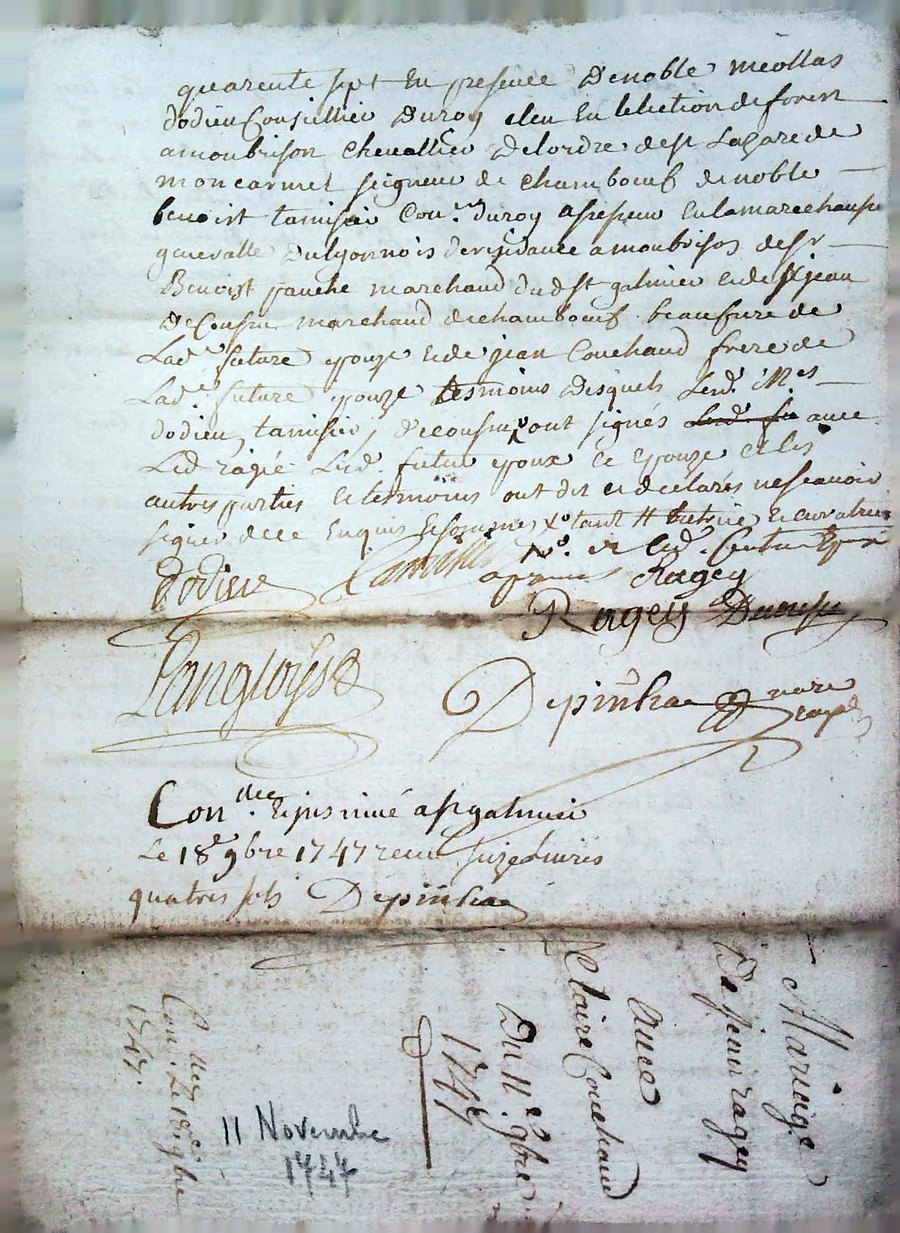 quarente sept En presence De noble meollas
dodieu Conseillier Du roy eleu En lelection de forest
a monbrison chevallier De lordre de st Lazare de
mon carmel seigneur de chambœuf de noble
benoist tamisier Con.er du roy assesseur En la marechaussee
generalle Du lyonnois de residance a monbrison de sr
Benoist marchand du d. st galmier et de sr jean
Decousu marchand de chambœuf beaufrere de
Lad.e future epouze et de jean Couchaud frere de
Lad.e future epouze tesmoins Desquels Lesd. Mes
dodieu, tamisier, decousu ont signés avec
Led ragié Led. futur epoux Et epouze et les
autres parties et tesmoins ont dit et declarés ne scavoir
signer de ce Enquis et sommes
dodieu Tamisier No. et Led.
Ragey
Ragey Decousu
Langloys Depinhac nore
royal
Con.llee et insinué a st galmier
Le 18e 9bre 1747 recu seize livres
quatres sols Depinhac
Mariage
De jean ragey
Avec
Claire Couchaud
Du 11.e 9bre
1747
Con. Le 18e 9bre
1747.
11 Novembre
1747